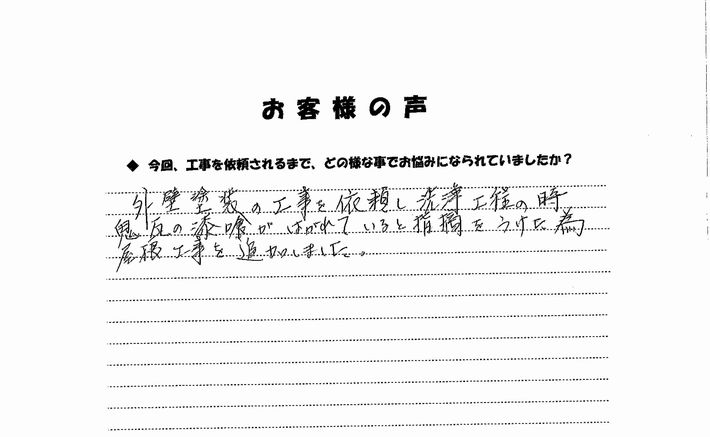 お客様の声
◆ 今回、工事を依頼されるまで、どの様な事でお悩みになられていましたか？
外壁塗装の工事を依頼し洗浄工程の時
鬼瓦の漆喰がはがれていると指摘をうけた為
屋根工事を追加しました。